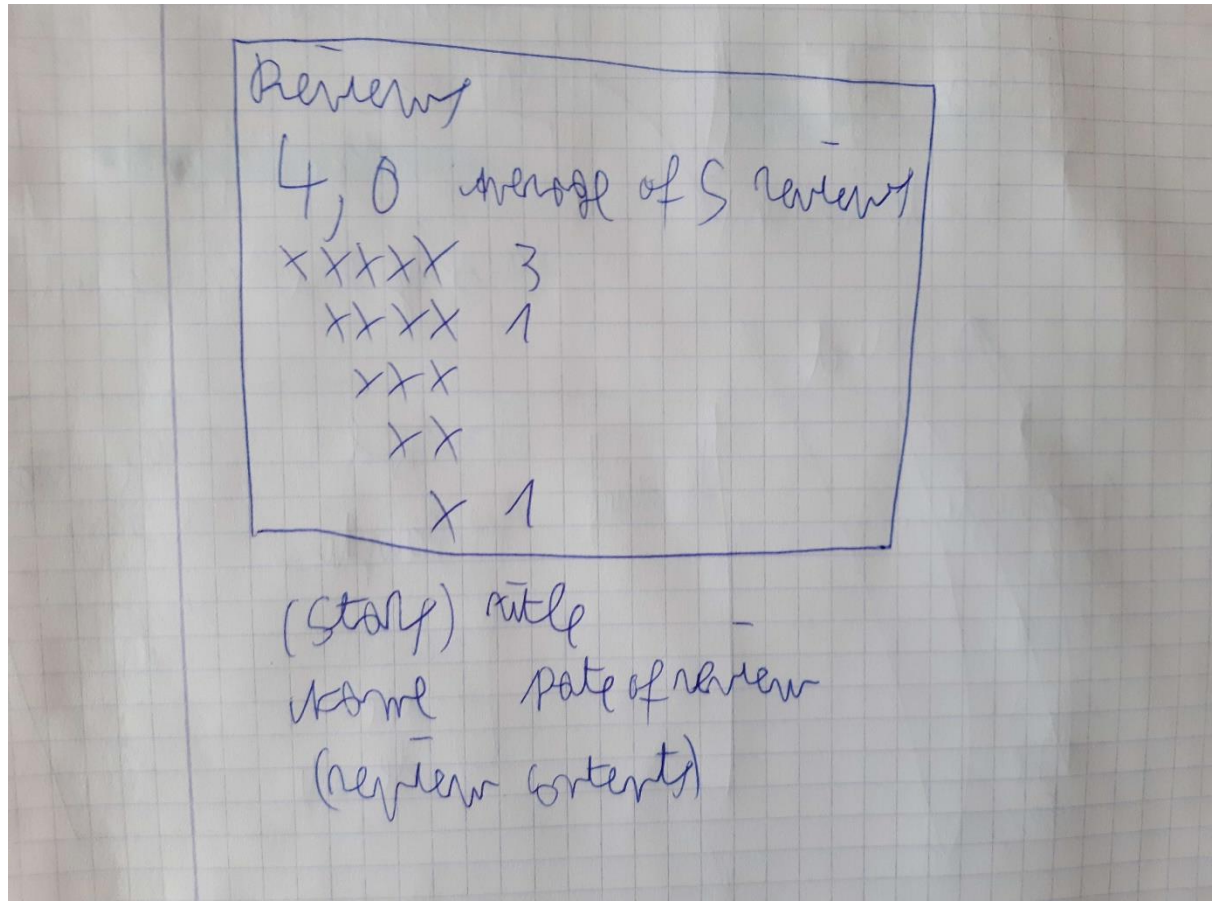 Reviews
4,0 average of 5 reviews
XXXXX 3
XXXX 1
XXX
XX
X 1
(stars) title
Name Date of review
(review contents)